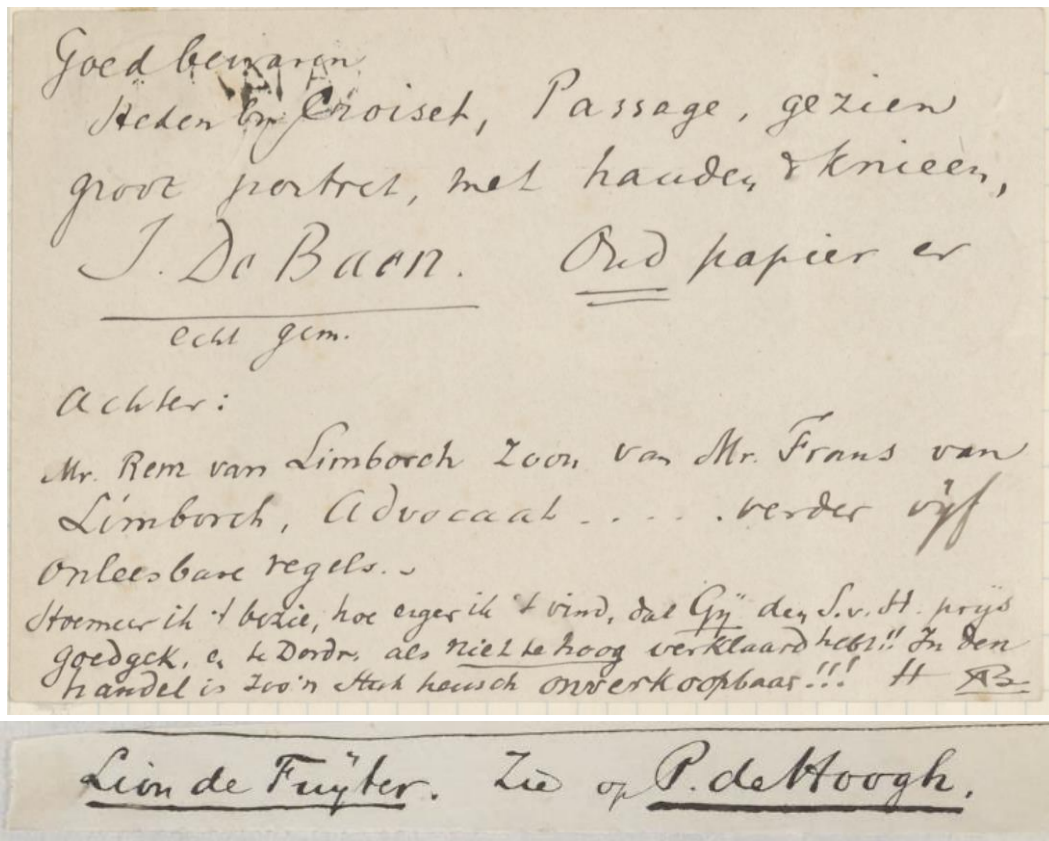 Goed bewaren
Heden bij Croiset, Passage, gezien
groot portret, met handen & knieen,
J. De Baen. Oud papier er
echt gem.
Achter:
Mr. Rem van Limborch Zoon van Mr. Frans van
Limborch, Advocaat ..... verder vijf
onleesbare regels..
Hoemeer ik 't bezie, hoe erger ik 't vind, dat Gÿ den S.v.H. prijs
goedgek. en te Dordr. als niet te hoog verklaard hebt!! In den
handel is zoo'n stuk heusch onverkoopbaar!!! H
Lion de Fuÿter. Zie op P. de Hoogh.